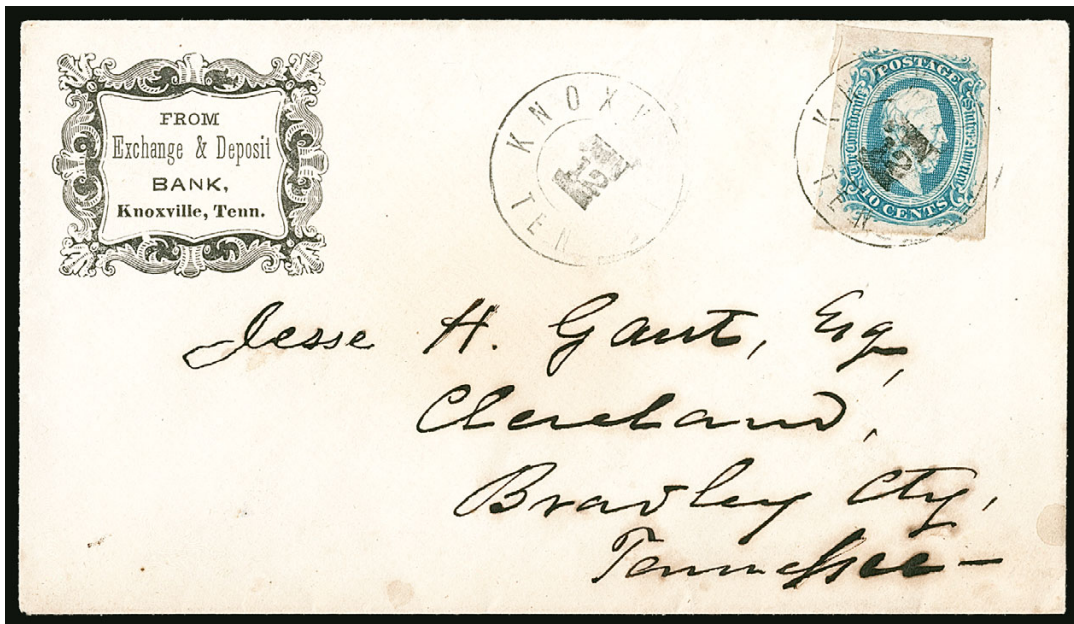 FROM
Exchange & Deposit
BANK,
Knoxville, Tenn.
KNOXV
TEN
POSTAGE
The Confederate States of America
10 CENTS
KN
TEN
Jesse H. Gaut, Esq,
Cleveland,
Bradley Cty,
Tennessee —